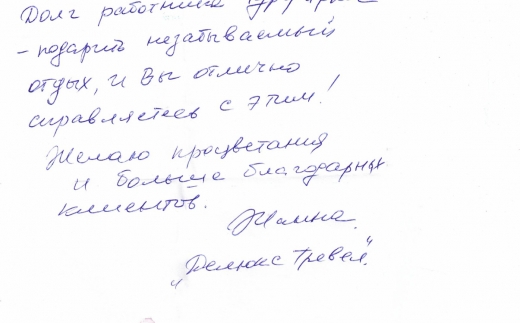 Долг работника
- подарить незабываемый
отдых, и Вы отлично
справляетесь с этим!
Желаю процветания
и больше благодарных
клиентов.
Жанна.
"Делюкс Тревел".